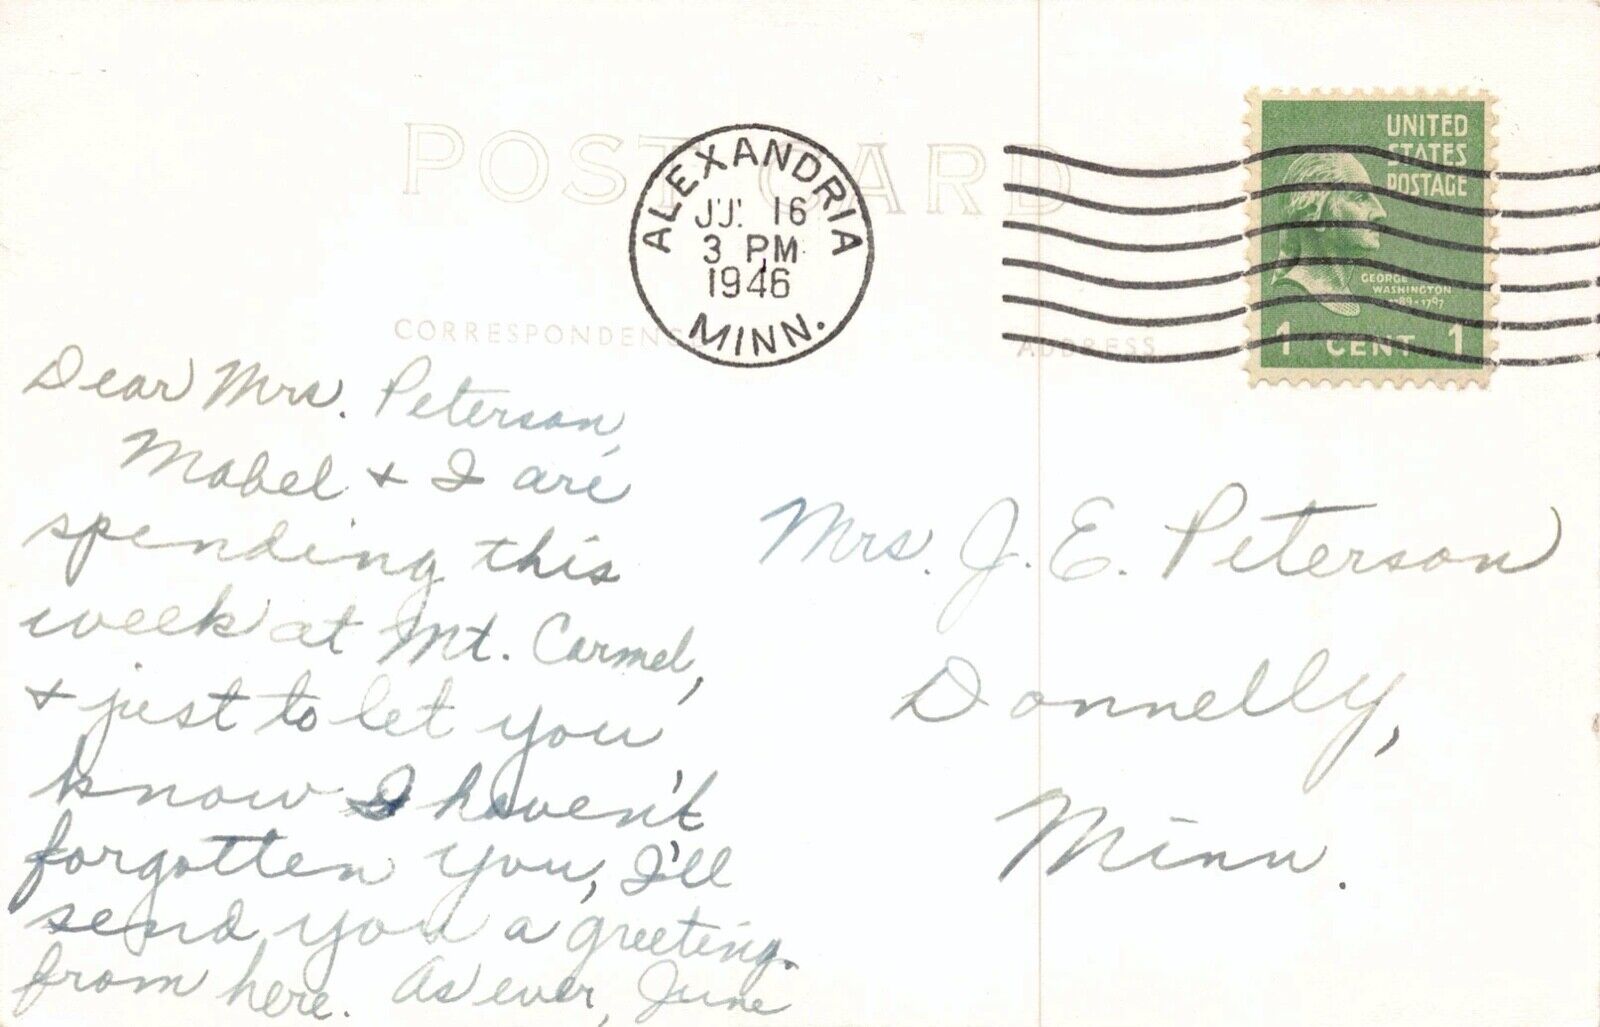 POST CARD
ALEXANDRIA
16
3 PM
1946
MINN.
UNITED
STATES
POSTAGE
GEORGE
WASHINGTON
1789-1797
1 CENT 1
CORRESPONDENCE
ADDRESS
Dear Mrs. Peterson,
Mabel & I are
spending this
week at Mt. Carmel,
& just to let you
know I haven't
forgotten you, I'll
send you a greeting.
from here. As ever, June
Mrs. J. E. Peterson
Donnelly,
Minn.